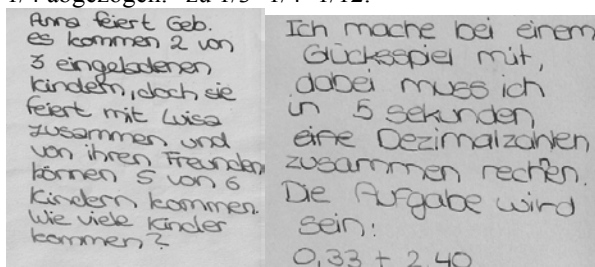 Anna feiert Geb.
es kommen 2 von
3 eingeladenen
Kindern, doch sie
feiert mit Luisa
zusammen und
von ihren Freunden
können 5 von 6
Kindern kommen.
Wie viele Kinder
kommen?
Ich mache bei einem
Glücksspiel mit,
dabei muss ich
in 5 Sekunden
eine Dezimalzahlen
zusammen rechen.
Die Aufgabe wird
sein:
0,33 + 2,40